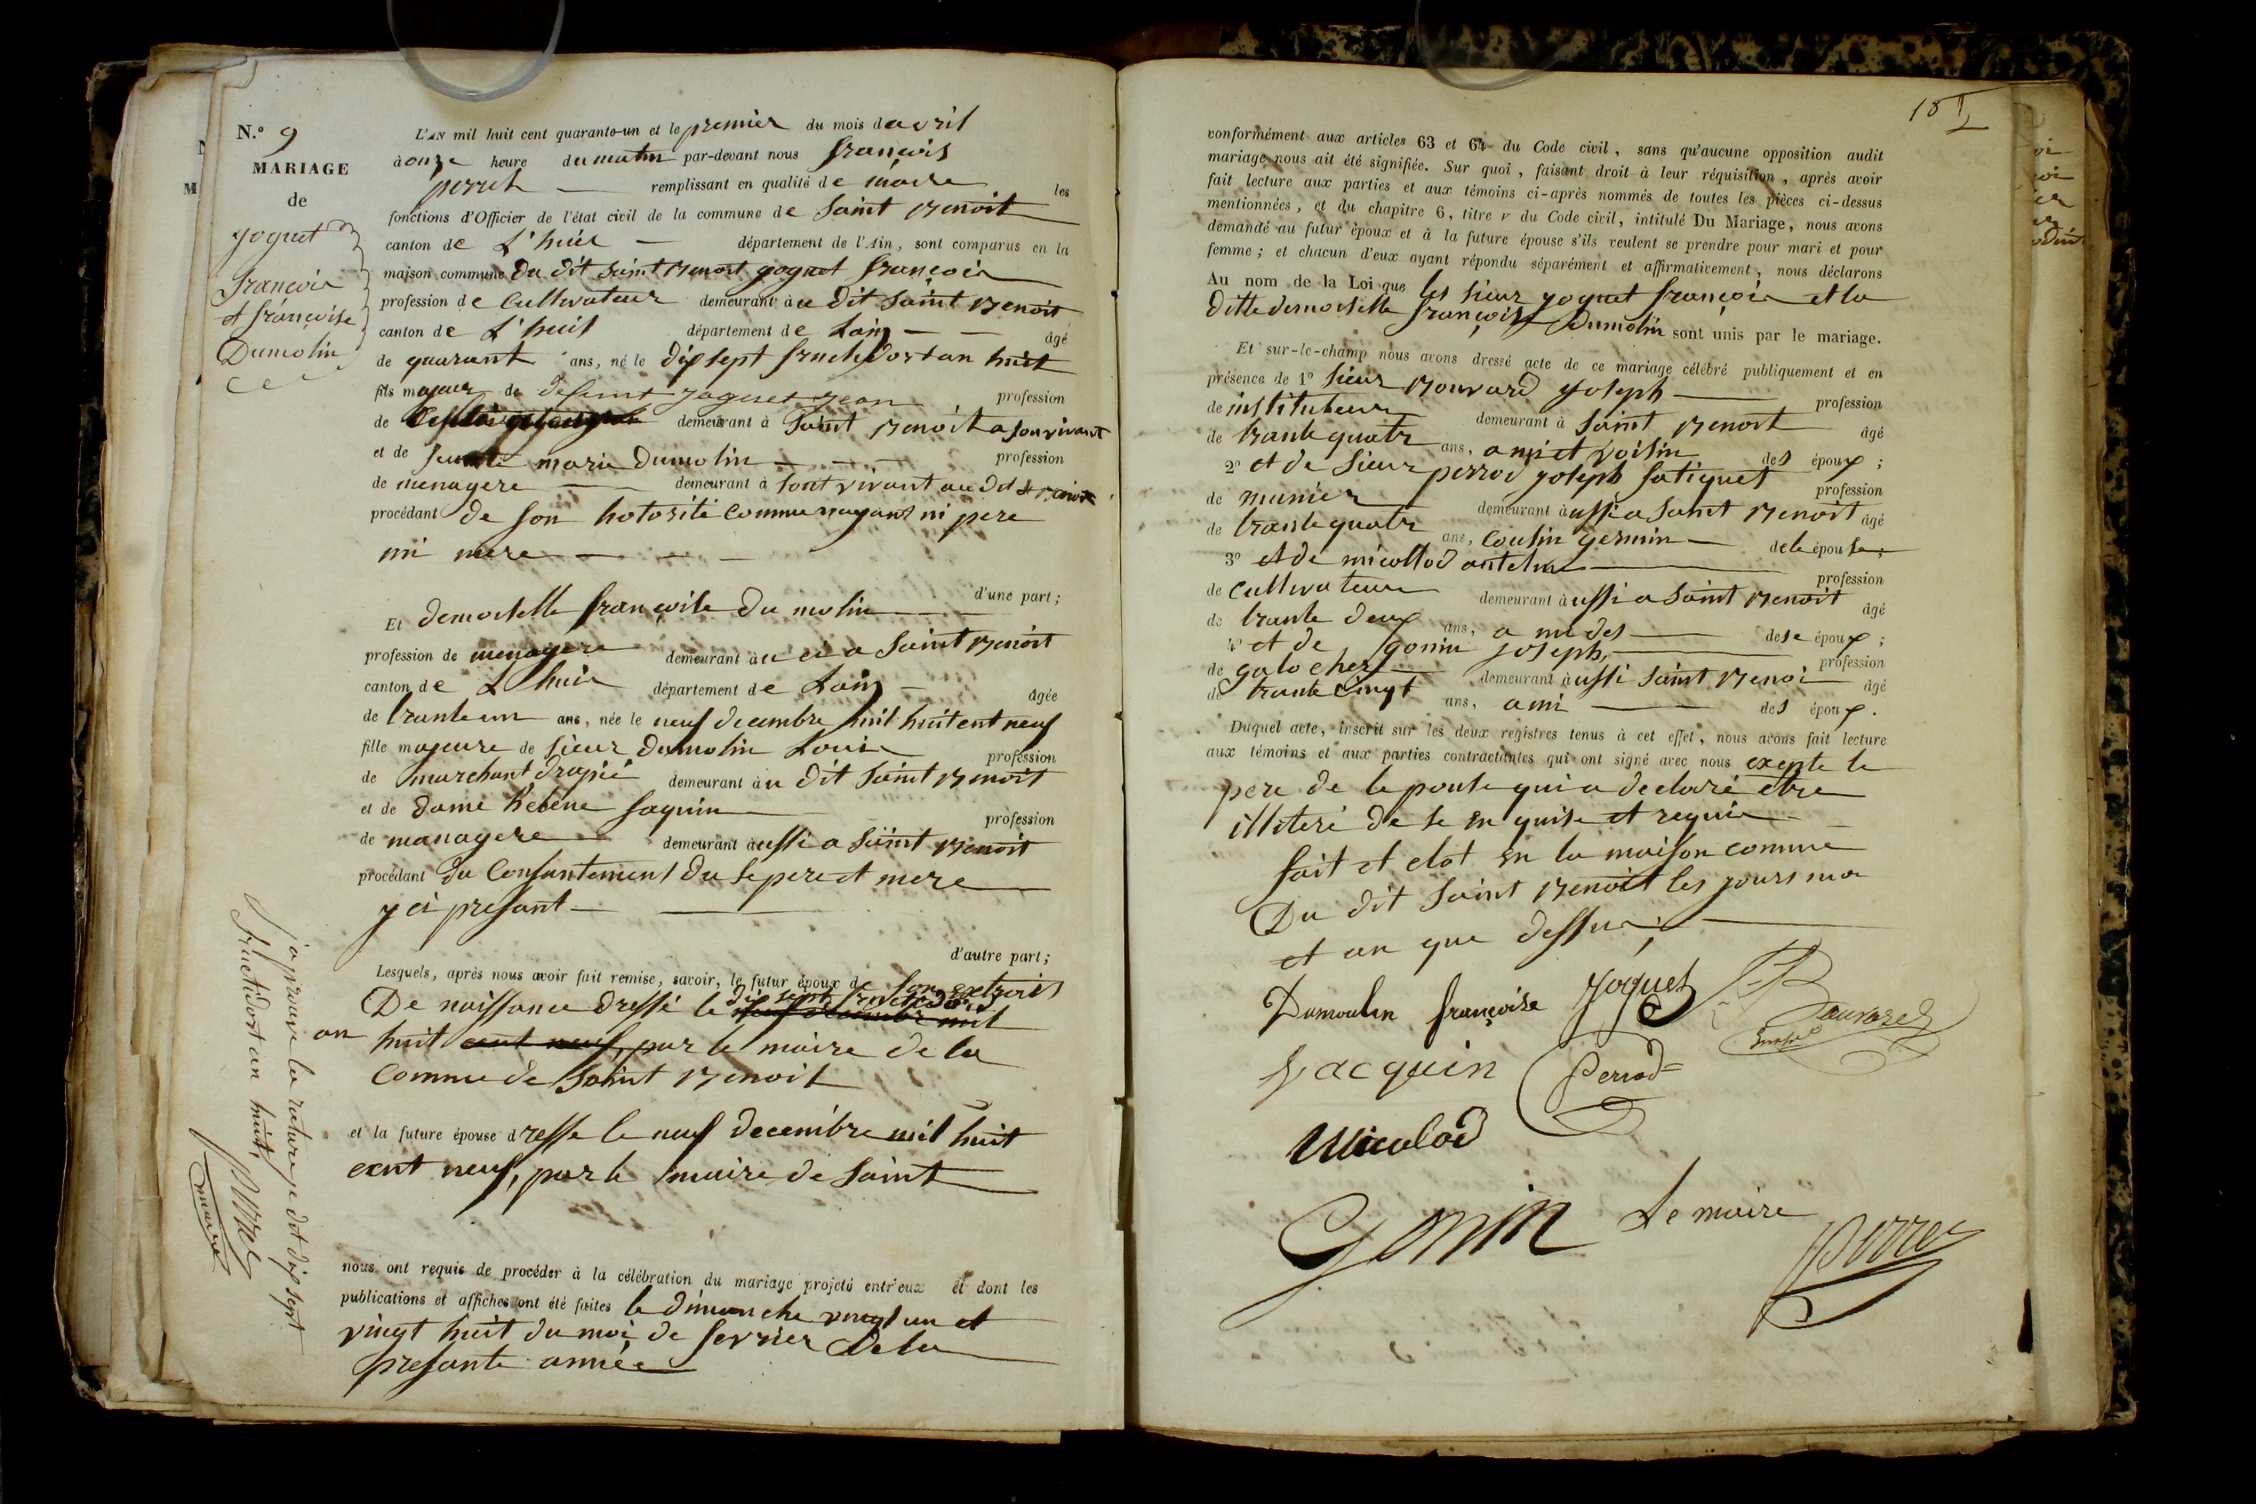 N.° 9
MARIAGE
de
yoguet
françois
et françoise
Dumolin
L'AN mil huit cent quarante-un et le premier du mois d avril
à onze heure du matin par-devant nous françois
perret remplissant en qualité de maire les
fonctions d'Officier de l'état civil de la commune de Saint Benoit
canton de L'huis département de l'Ain, sont comparus en la
maison commune du dit saint Benoit yoguet françois
profession de cultivateur demeurant au dit saint Benoit
canton de L'huis département de Lain âgé
de quarant ans, né le dix sept fructidort an huit
fils majeur de defunt yoguet jean profession
de demeurant à Saint Benoit a son vivant
et de marie Dumolin profession
de menagere demeurant à sont vivant au dit st Benoit
procédant de son notorité comme nayant ni pere
ni mere
d'une part;
Et demoiselle françoise Du molin
profession de menagere demeurant à Saint Benoit
canton de L huis département de Lain âgée
de trante un ans, née le neuf decembre mil huit cent neuf
fille majeure de sieur Dumolin Louis profession
de marchant drapié demeurant au dit Saint Benoit
et de dame helene Jaquin profession
de managere demeurant aussi a saint Benoit
procédant du Consantement du se pere et mere
y ci presant
d'autre part;
Lesquels, après nous avoir fait remise, savoir, le futur époux de son extrait
De naissance dressé le dix sept fructidort
neuf decembre mil
an huit cent neuf, par le maire de la
commue de Saint Benoit
et la future épouse dresse le neuf decembre mil huit
cent neuf, par le maire de Saint
nous ont requis de procéder à la célébration du mariage projeté entr'eux et dont les
publications et affiches ont été faites le dimanche vingt un et
vingt huit du moi de fevrier De la
presante année
j'aprouve la rature je dot dix sept
fructidort an huit
Perret
maire
18
conformément aux articles 63 et 64 du Code civil, sans qu'aucune opposition audit
mariage nous ait été signifiée. Sur quoi, faisant droit à leur réquisition, après avoir
fait lecture aux parties et aux témoins ci-après nommés de toutes les pièces ci-dessus
mentionnées, et du chapitre 6, titre v du Code civil, intitulé Du Mariage, nous avons
demandé au futur époux et à la future épouse s'ils veulent se prendre pour mari et pour
femme; et chacun d'eux ayant répondu séparément et affirmativement, nous déclarons
Au nom de la Loi que les sieur yoguet françois et la
ditte demoiselle françoise Dumolin sont unis par le mariage.
Et sur-le-champ nous avons dressé acte de ce mariage célébré publiquement et en
présence de 1° sieur Bouvard joseph profession
de instituteur demeurant à Saint Benoit âgé
de trante quatr ans, ami et voisin des époux;
2° et de sieur perrod joseph profession
de munier demeurant aussi a Saint Benoit âgé
de trante quatr ans, cousin germin de le épouse;
3° et de micollod antelme profession
de cultivateur demeurant aussi a Saint Benoit âgé
de trante deux ans, a mi des de se époux;
4° et de gonin joseph profession
de galocher demeurant aussi Saint Benoi âgé
de trante cinqt ans, ami des époux.
Duquel acte, inscrit sur les deux registres tenus à cet effet, nous avons fait lecture
aux témoins et aux parties contractantes qui ont signé avec nous exepte le
pere de le pouse qui a declaré etre
illiteré de se en quise et requis
fait et clot en la maison commue
Du dit Saint Benoit les jours moi
et an que dessus
Dumoulin françoise yoguet
Jacquin Perrod
Micolod
Gonin Le maire
Perret